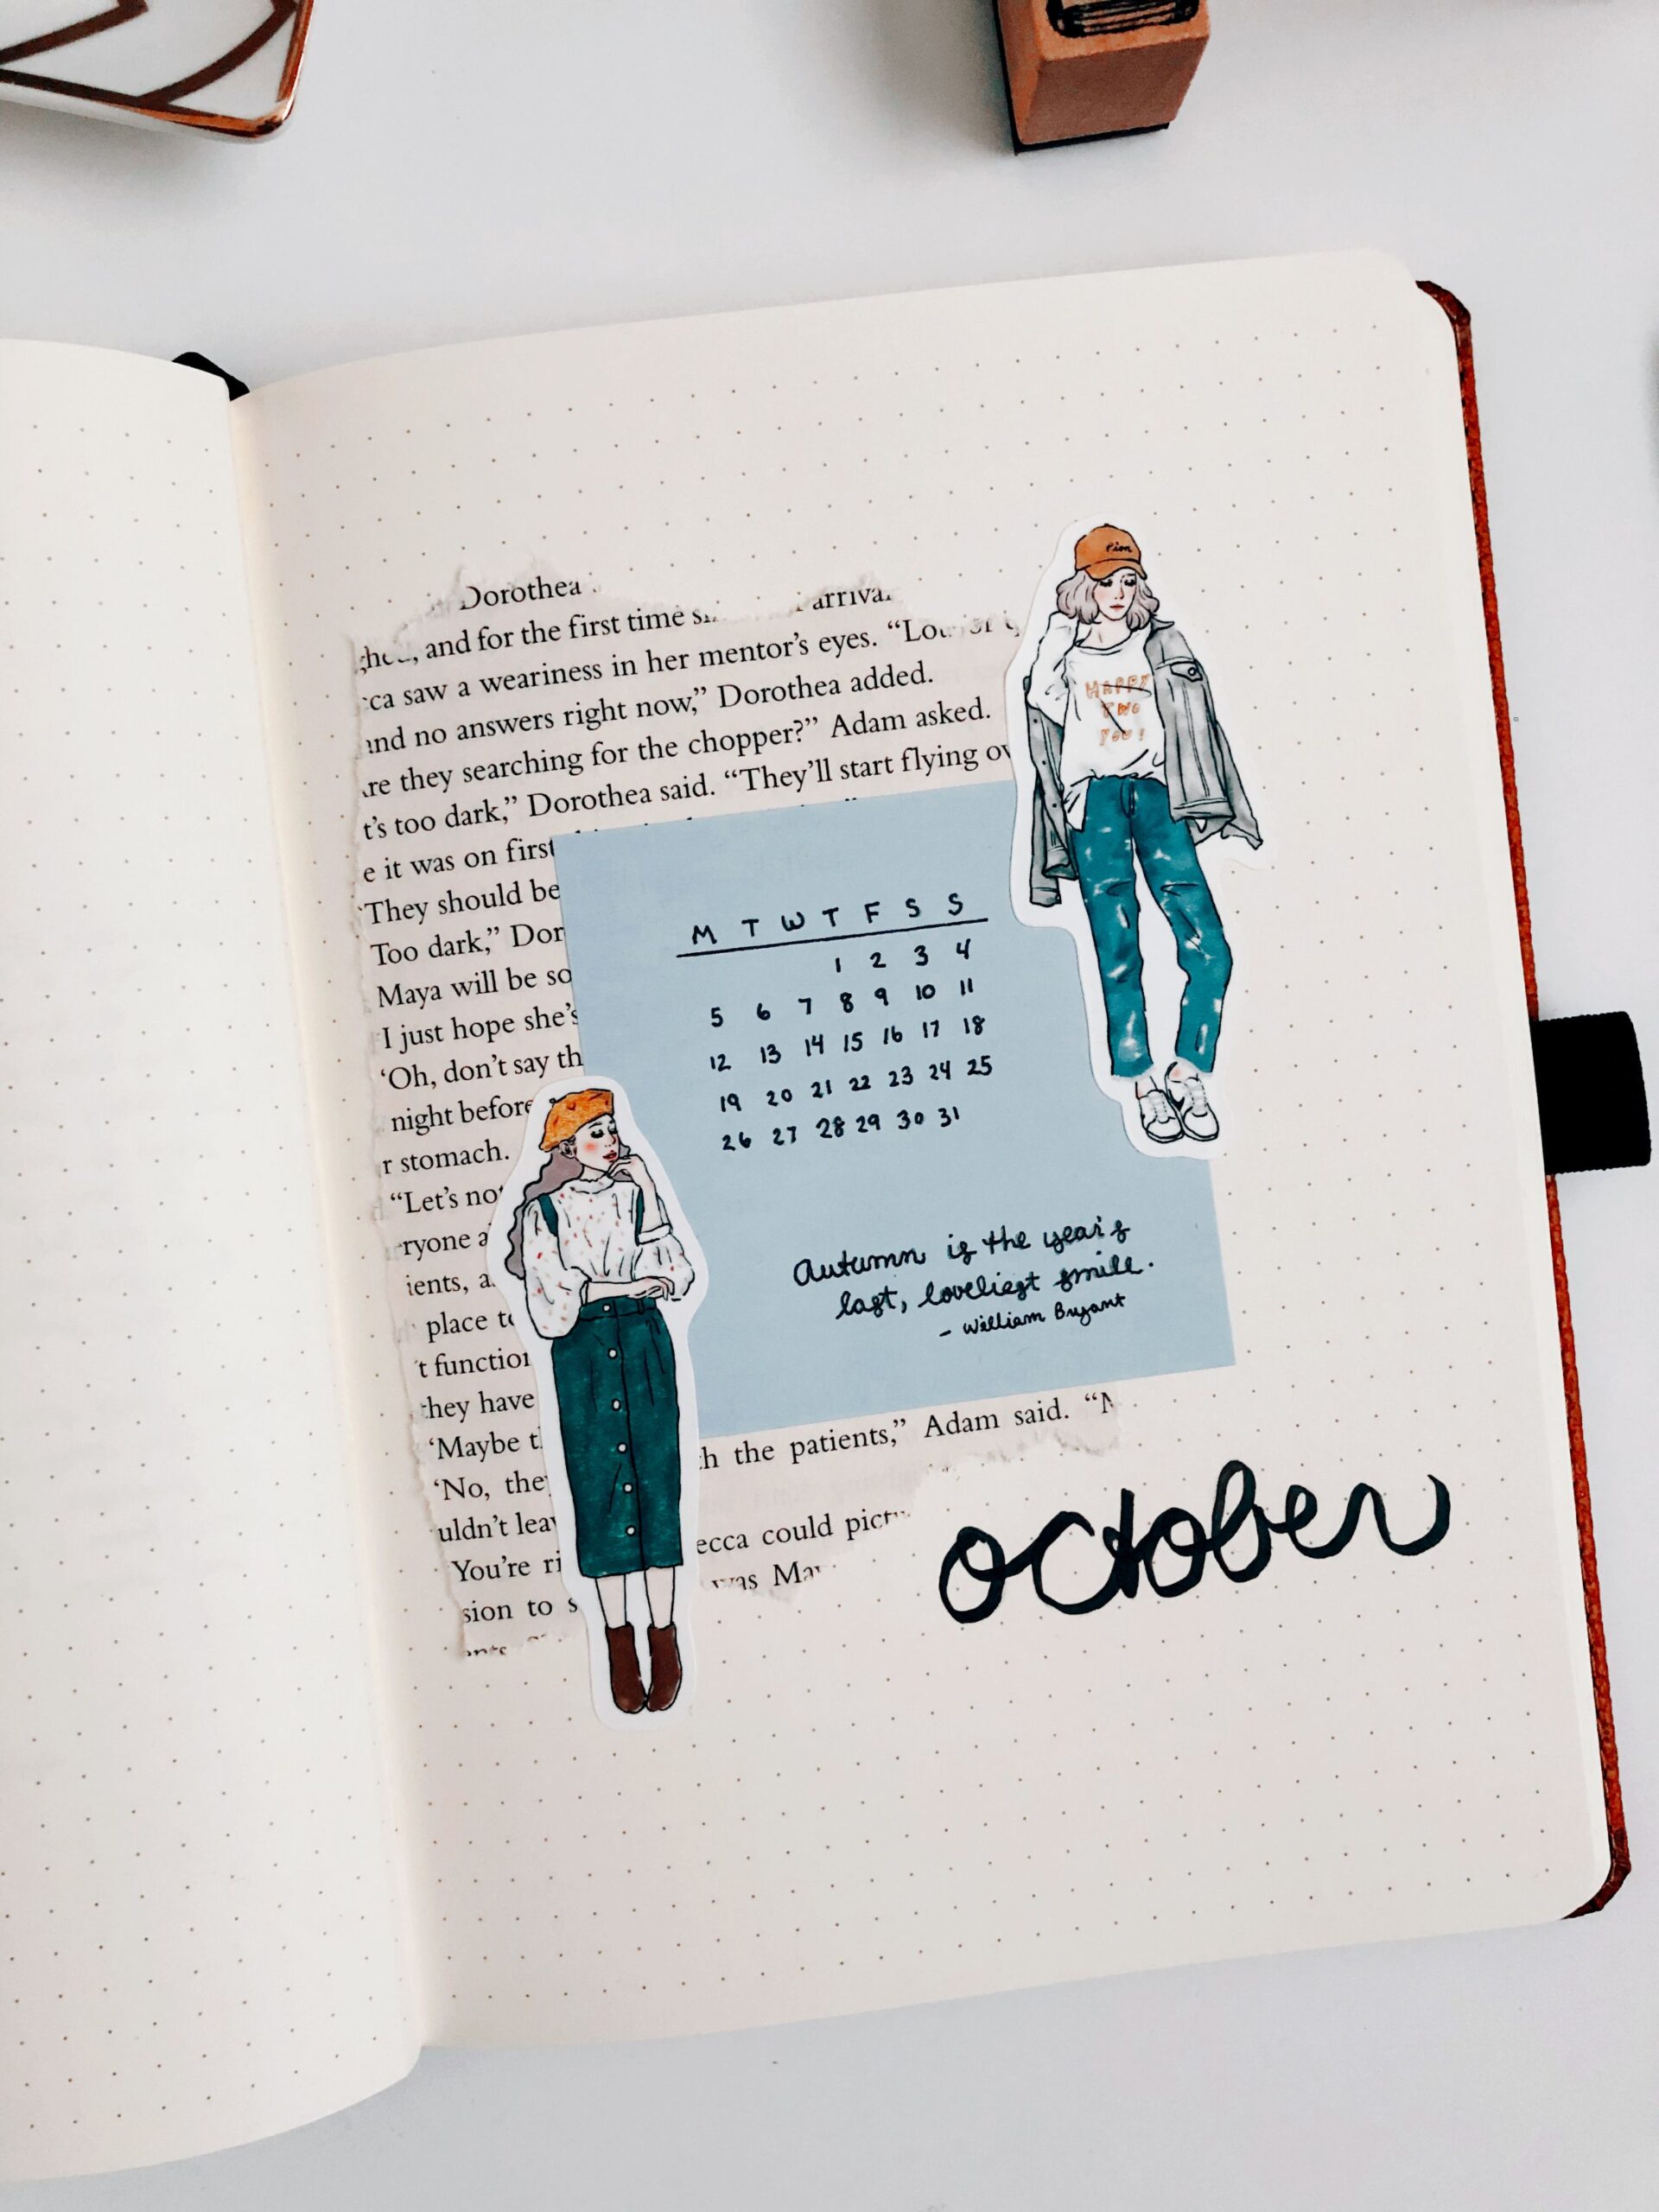 Dorothea
, and for the first time
saw a weariness in her mentor's eyes. “
and no answers right now,” Dorothea added.
re they searching for the chopper?” Adam asked.
t's too dark,” Dorothea said. “They'll start flying
e it was on first
‘They should be
Too dark,”
Maya will be
‘I just hope she's
‘Oh, don't say
night before
r stomach.
“Let's
place
they have
‘Maybe
‘No,
You're
sion to
the patients,” Adam said. “
could
was
Pion
HAPPY
TWO
YOU!
M T W T F S S
1 2 3 4
5 6 7 8 9 10 11
12 13 14 15 16 17 18
19 20 21 22 23 24 25
26 27 28 29 30 31
Autumn is the year's
last, loveliest smile.
- William Bryant
october